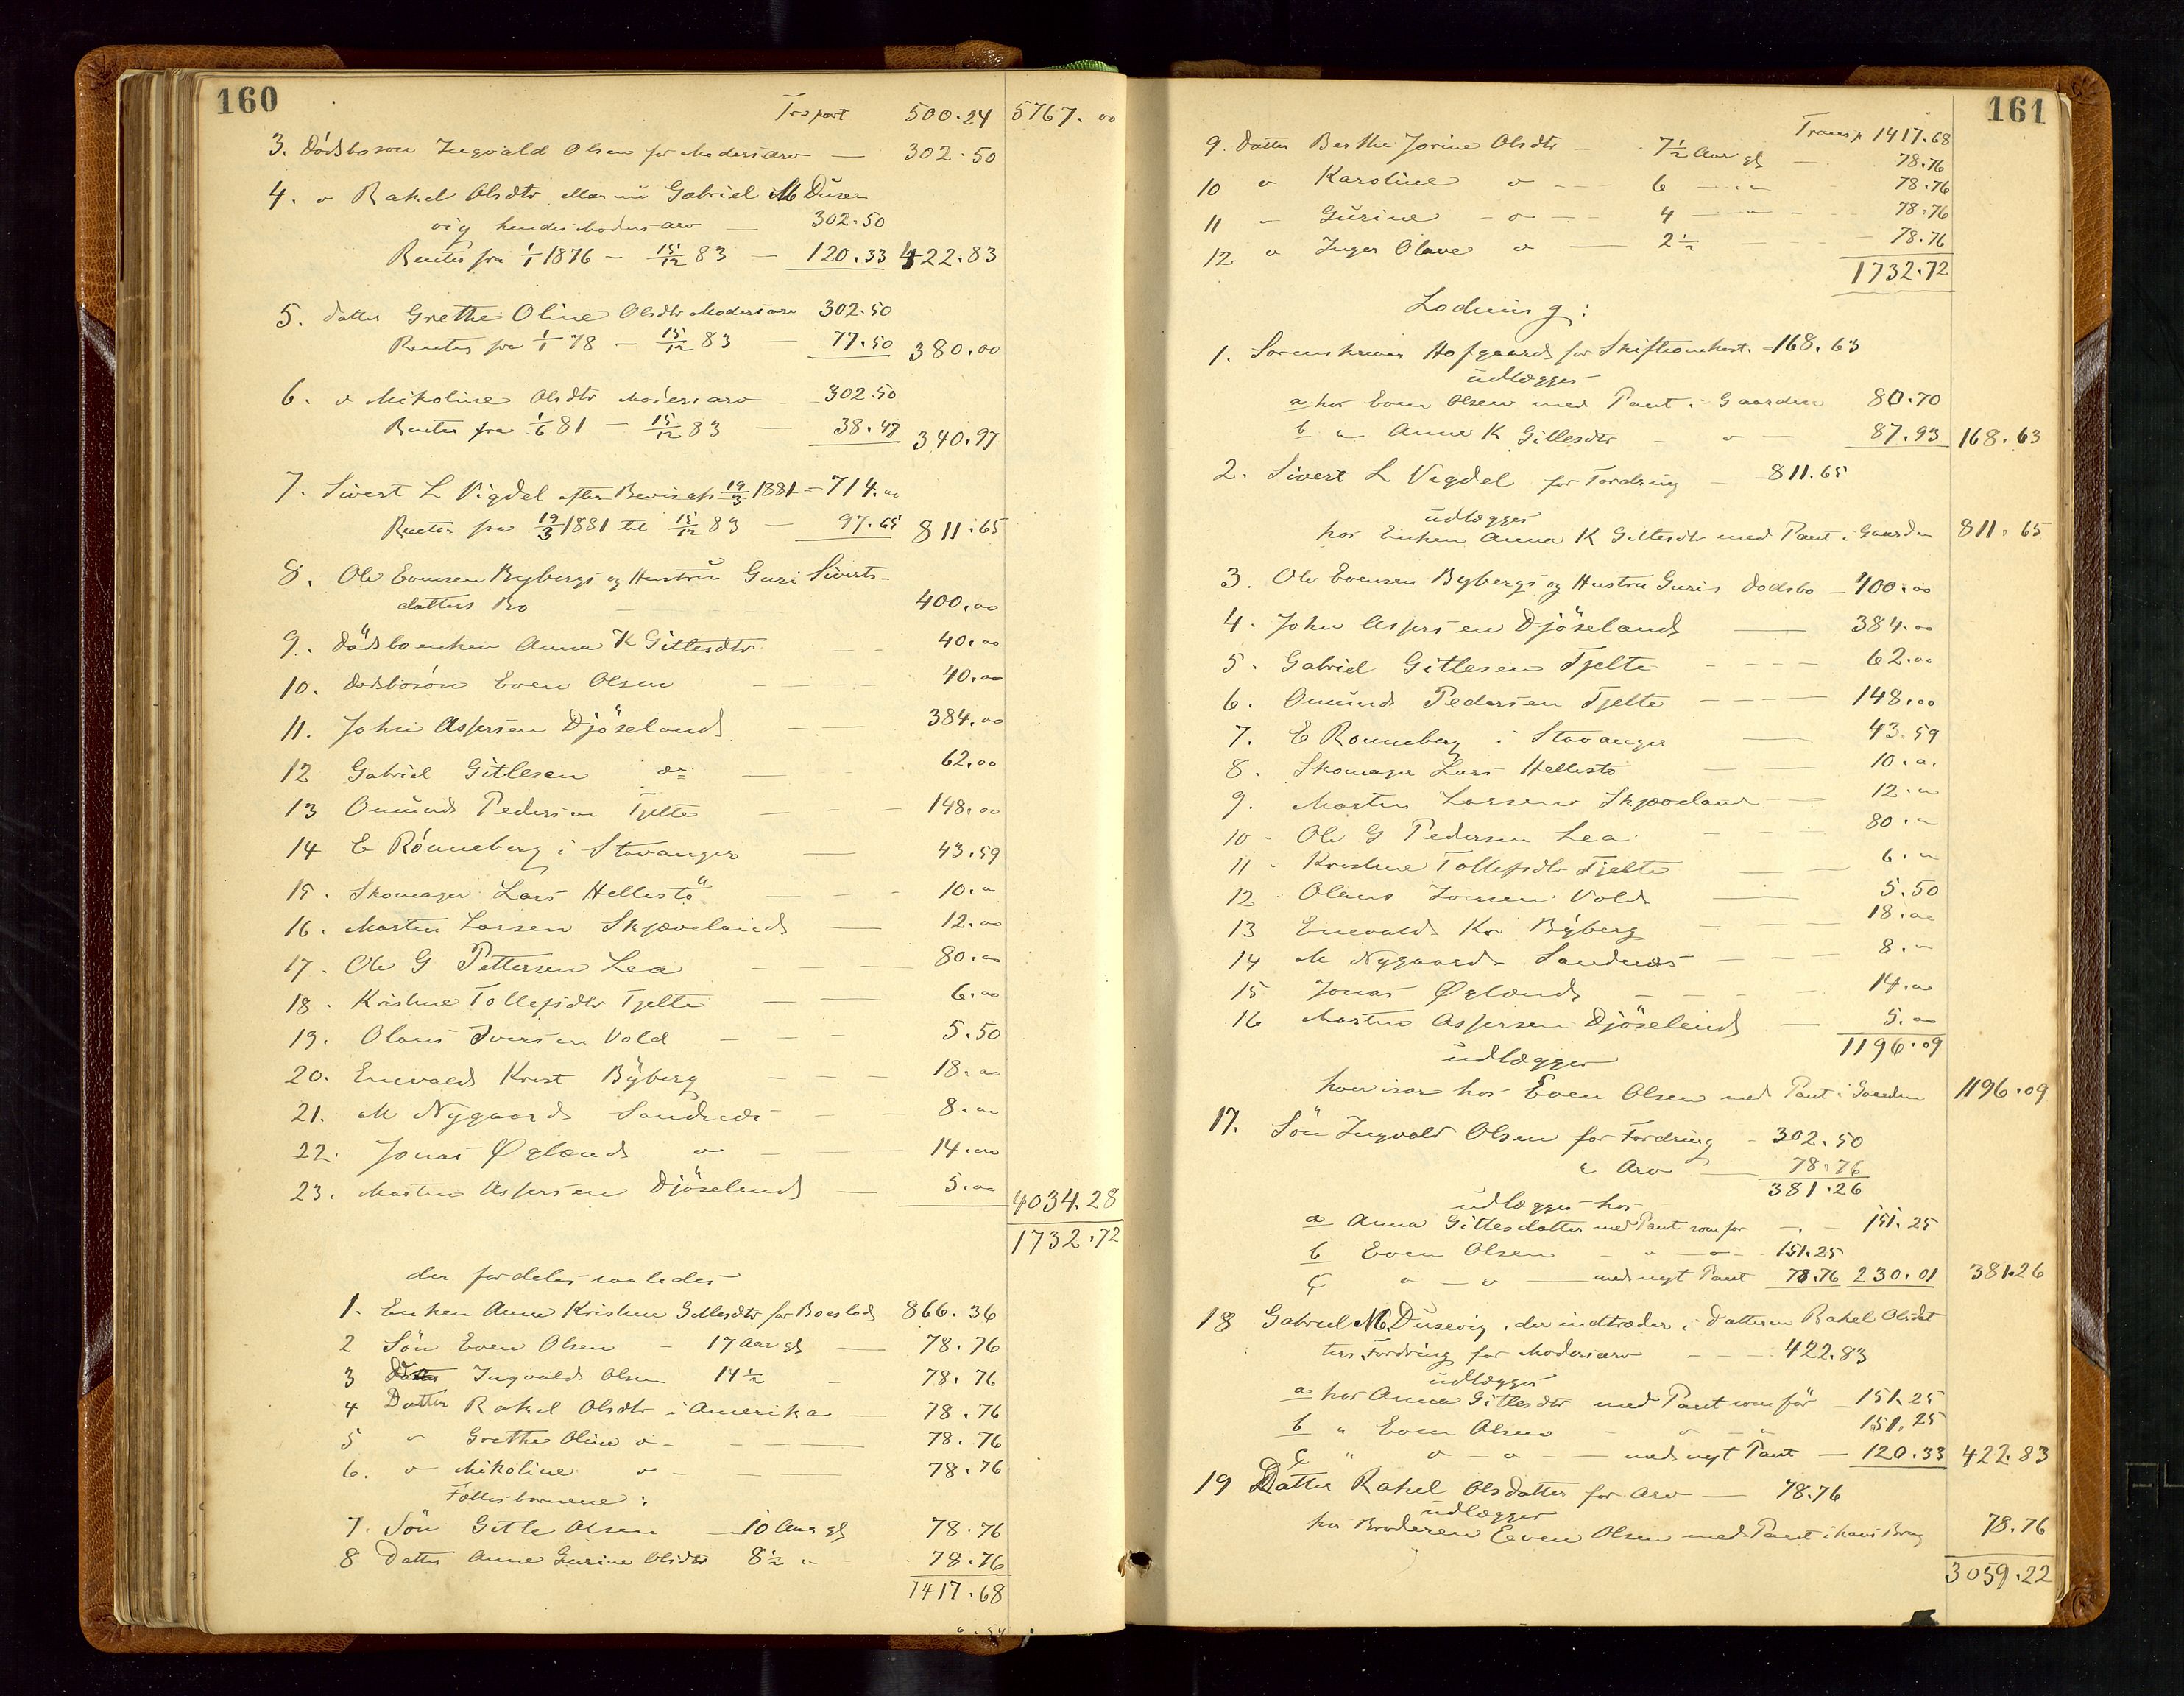 160
Trsport 500.24 5767.00
3. Dödsbosön Ingvald Olsen for Modersarv — 302.50
4. " Rakel Olsdtr Gabriel M Duse
vig hendes Modersarv — 302.50
Renter fra 1/1 1876 – 15/12 83 — 120.33 422.83
5. Datter Grethe Oline Olsdtr Modersarv 302.50
Renter fra 1/1 78 – 15/12 83 — 77.50 380.00
6. " Mikoline Olsdtr Modersarv 302.50
Renter fra 1/6 81 – 15/12 83 — 38.47 340.97
7. Sivert L Vigdel efter Bevis af 19/3 1881 – 714.00
Renter fra 19/3 1881 til 15/12 83 — 97.65 811.65
8. Ole Evensen Bybergs og Hustru Guri Siverts-
datters Bo 400.00
9. Dödsboenken Anna K Gitlesdtr 40.00
10. Dödsbosön Even Olsen 40.00
11. John Aspersen Djöseland 384.00
12 Gabriel Gitlesen do 62.00
13 Omund Pedersen Tjelte 148.00
14 E Rönneberg i Stavanger 43.59
15. Skomager Lars Hellestö 10.00
16. Martin Larsen Skjæveland 12.00
17. Ole G Pettersen Lea 80.00
18. Kristine Tollefsdtr Tjelte 6.00
19. Olaus Iversen Vold 5.50
20. Enevald Krist Byberg 18.00
21. M Nygaard Sandnes 8.00
22. Jonas Øglænd " 14.00
23. Martin Aspersen Djöseland 5.00 4034.28
1732.72
der fordeles saaledes
1. Enken Anna Kristine Gitlesdtr for Boeslod 866.36
2 Sön Even Olsen – 17 Aar gl — 78.76
3 Ingvald Olsen 14½ – 78.76
4 Datter Rakel Olsdtr i Amerika — 78.76
5 " Grethe Oline " – 78.76
6. " Mikoline " – 78.76
Fællesbørnene:
7. Sön Gitle Olsen — 10 Aar gl 78.76
8 Datter Anne Gurine Olsdtr 8½ " 78.76
1417.68
161
Transp 1417.68
9. Datter Berthe Jorine Olsdtr – 7½ Aar gl – 78.76
10 " Karoline " — 6 — " 78.76
11 " Gurine – " — 4 — " – 78.76
12. " Inger Olave " — 2½ — 78.76
1732.72
Lodning:
1. Sorenskriver Hofgaard for Skifteomkost. – 168.63
udlægges
a hos Even Olsen med Pant i Gaarden 80.70
b " Anne K Gitlesdtr – " — 87.93 168.63
2. Sivert L Vigdel for Fordring – 811.65
udlægges
hos Enken Anna K Gitlesdtr med Pant i Gaarden 811.65
3. Ole Evensen Bybergs og Hustru Guris Dødsbo – 400.00
4. John Aspersen Djöseland — 384.00
5. Gabriel Gitlesen Tjelte 62.00
6. Omund Pedersen Tjelte 148.00
7. E Ronneberg i Stavanger 43.59
8. Skomager Lars Hellestö 10.00
9. Martin Larsen Skjæveland 12.00
10 Ole G Pedersen Lea 80.00
11 Kristine Tollefsdtr Tjelte 6.00
12 Olaus Iversen Vold 5.50
13 Enevald Kr Byberg 18.00
14 M Nygaard Sandnæs 8.00
15 Jonas Øglænd 14.00
16 Martin Aspersen Djöseland 5.00
1196.09
udlægges
hos Even Olsen med Pant i Gaarden 1196.09
17. Sön Ingvald Olsen for Fordring – 302.50
" Arv — 78.76
381.26
udlægges hos
a Anna Gitlesdatter med Pant som för — 151.25
b Even Olsen – " — " – 151.25
c " – " — med nyt Pant 78.76 230.01 381.26
18 Gabriel M. Dusevig, der indtræder i Datteren Rakel Olsdat
ters Fordring for Modersarv — 422.83
udlægges
a hos Anna Gitlesdtr med Pant som för – 151.25
b " Even Olsen – " – " 151.25
c " " – " — med nyt Pant — 120.33 422.83
19 Datter Rakel Olsdatter for Arv — 78.76
udlægges
hos Broderen Even Olsen med Pant i hans Brug 78.76
3059.22